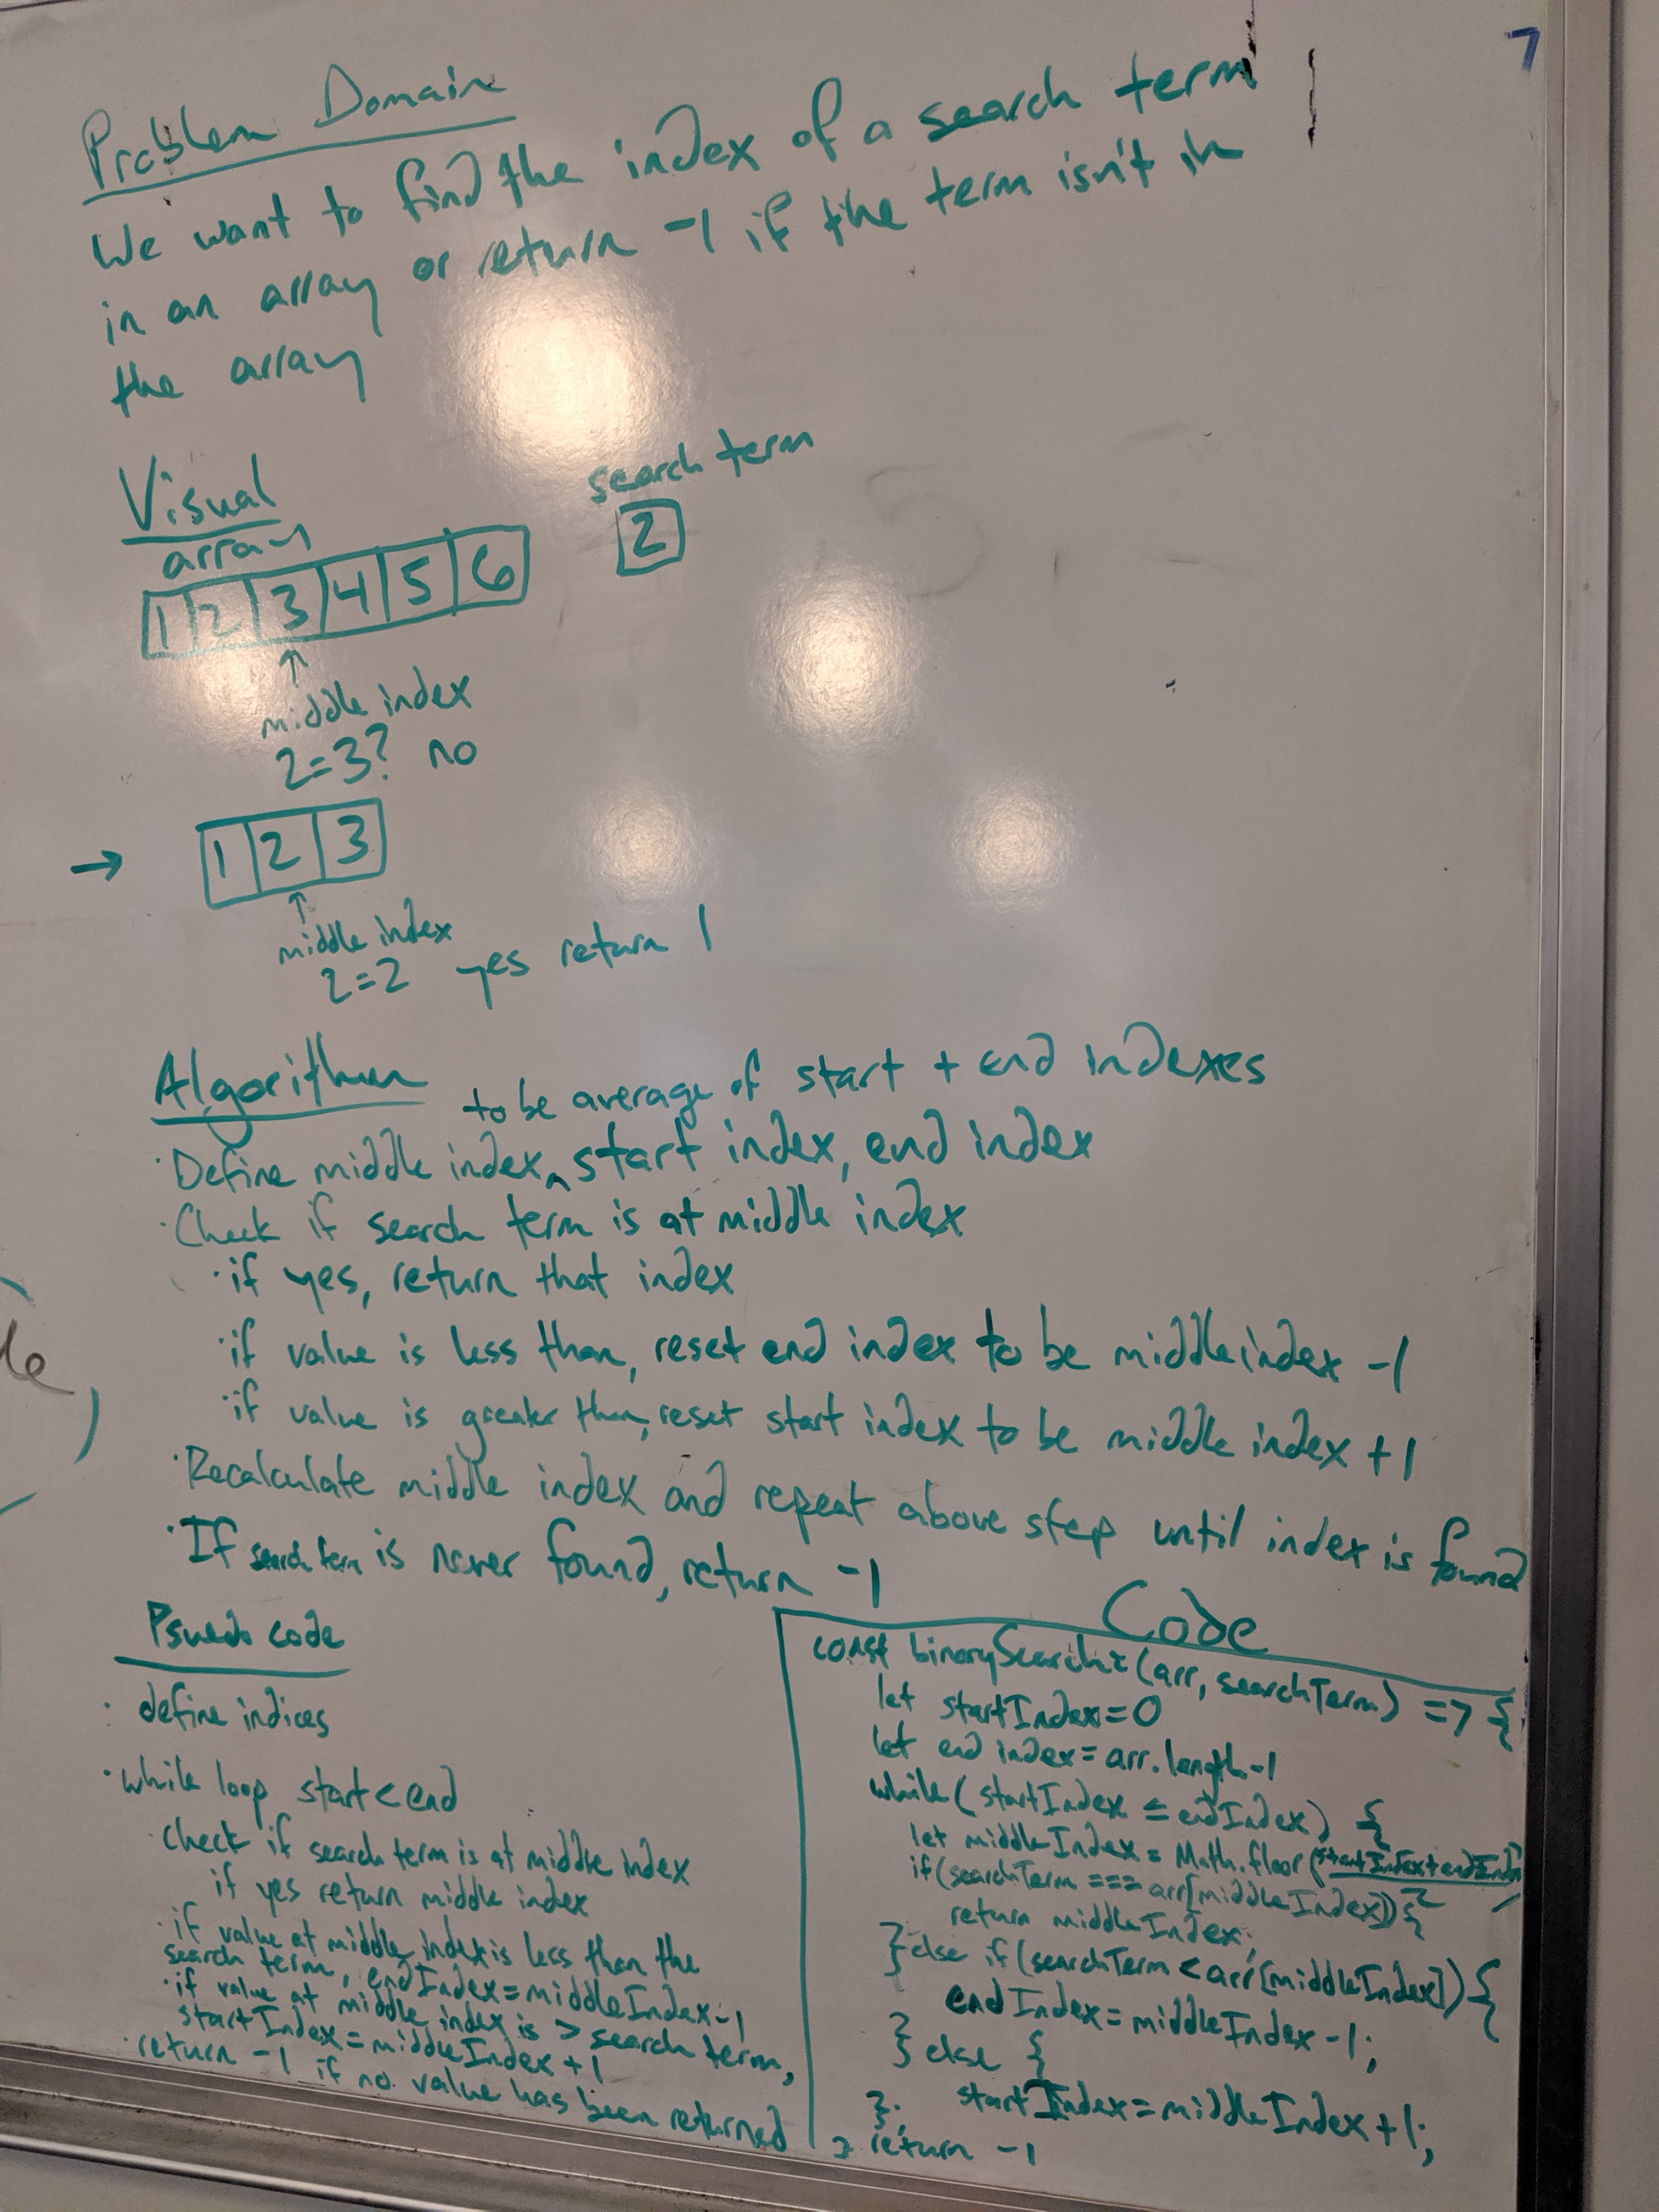 7
Problem Domain
We want to find the index of a search term
in an array or return -1 if the term isn't in
the array
Visual
array
search term
1 2 3 4 5 6
2
↑
middle index
2=3? no
→ 1 2 3
↑
middle index
2=2 yes return 1
Algorithm
to be average of start + end indexes
· Define middle index, ^ start index, end index
· Check if search term is at middle index
· if yes, return that index
· if value is less than, reset end index to be middle index -1
· if value is greater than, reset start index to be middle index +1
· Recalculate middle index and repeat above step until index is found
· If search term is never found, return -1
Psuedo code
· define indices
· while loop start < end
· check if search term is at middle index
if yes return middle index
· if value at middle index is less than the
search term, endIndex = middleIndex -1
· if value at middle index is > search term,
startIndex = middleIndex +1
· return -1 if no value has been returned
Code
const binarySearch = (arr, searchTerm) => {
let startIndex = 0
let end index = arr.length -1
while (startIndex ≤ endIndex) {
let middleIndex = Math.floor(startIndex + endIndex
if (searchTerm === arr[middleIndex]) {
return middleIndex;
} else if (searchTerm < arr[middleIndex]) {
endIndex = middleIndex -1;
} else {
startIndex = middleIndex +1;
};
return -1
}